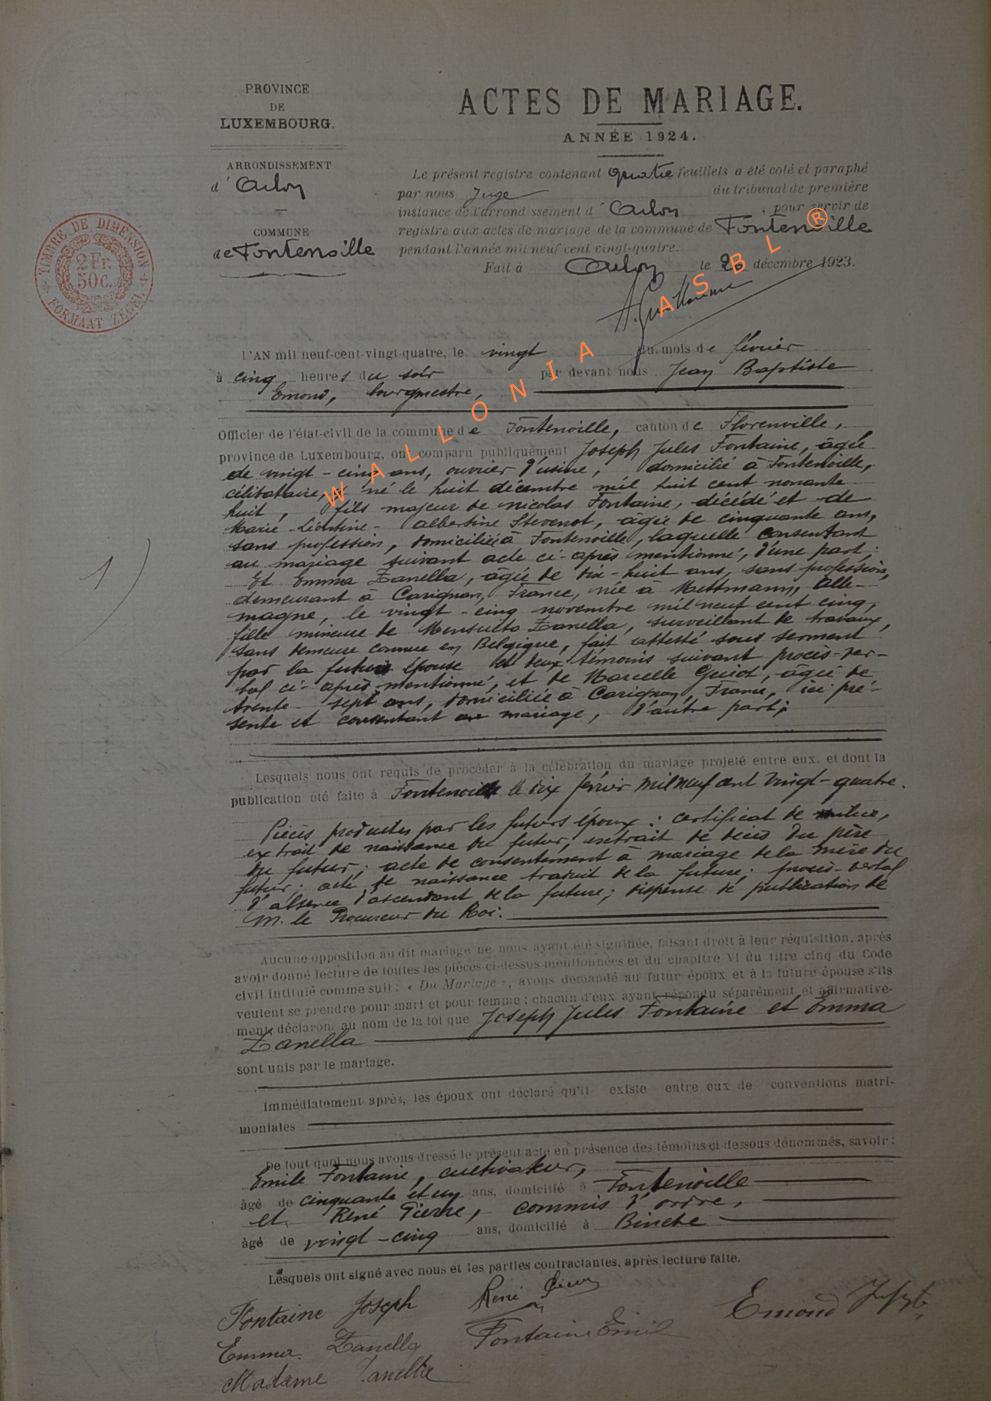 PROVINCE
DE
LUXEMBOURG.
ARRONDISSEMENT
d'Arlon
COMMUNE
de Fontenoille
TIMBRE DE DIMENSION
2 Fr.
50 C.
FORMAAT ZEGEL
ACTES DE MARIAGE.
ANNÉE 1924.
Le présent registre contenant quatre feuillets a été coté et paraphé
par nous Juge du tribunal de première
instance de l'arrondissement d'Arlon, pour servir de
registre aux actes de mariage de la commune de Fontenoille
pendant l'année mil neuf cent vingt-quatre.
Fait à Arlon le 20 décembre 1923.
WALLONIA ASBL ®
1)
L'AN mil neuf-cent-vingt-quatre, le vingt du mois de février
à cinq heures du soir par devant nous Jean Baptiste
Emond, bourgmestre,
Officier de l'état-civil de la commune de Fontenoille, canton de Florenville,
province de Luxembourg, ont comparu publiquement Joseph Jules Fontaine, âgé
de vingt-cinq ans, ouvrier d'usine, domicilié à Fontenoille,
célibataire, né le huit décembre mil huit cent nonante
huit, fils majeur de Nicolas Fontaine, décédé et de
Marie-Léontine-Albertine Stevenot, âgée de cinquante ans,
sans profession, domiciliée à Fontenoille, laquelle consentant
au mariage suivant acte ci-après mentionné, d'une part;
Et Emma Zanella, âgée de dix-huit ans, sans profession,
demeurant à Carignan, France, née à Mettmann, Alle-
magne, le vingt-cinq novembre mil neuf cent cinq,
fille mineure de Zanella, surveillant de travaux,
sans demeure connue en Belgique, fait attesté sous serment
par la future épouse et deux témoins suivant procès-ver-
bal ci-après mentionné, et de Marcelle Guiot, âgée de
trente-sept ans, domiciliée à Carignan, France, ici pré-
sente et consentant au mariage, d'autre part;
Lesquels nous ont requis de procéder à la célébration du mariage projeté entre eux, et dont la
publication été faite à Fontenoille le dix février mil neuf cent vingt-quatre.
Pièces produites par les futurs époux: certificat de milice,
extrait de naissance du futur, extrait de décès du père
du futur; acte de consentement à mariage de la mère du
futur; acte de naissance traduit de la future; procès-verbal
d'absence d'ascendant de la future; dispense de publication de
M. le Procureur du Roi.
Aucune opposition au dit mariage ne nous ayant été signifiée, faisant droit à leur réquisition, après
avoir donné lecture de toutes les pièces ci-dessus mentionnées et du chapitre VI du titre cinq du Code
civil intitulé comme suit: « Du Mariage », avons demandé au futur époux et à la future épouse s'ils
veulent se prendre pour mari et pour femme; chacun d'eux ayant répondu séparément et affirmative-
ment, déclarons au nom de la loi que Joseph Jules Fontaine et Emma
Zanella
sont unis par le mariage.
Immédiatement après, les époux ont déclaré qu'il existe entre eux de conventions matri-
moniales
De tout quoi nous avons dressé le présent acte en présence des témoins ci-dessous dénommés, savoir:
Emile Fontaine, cultivateur,
âgé de cinquante et un ans, domicilié à Fontenoille
et René Pierre, commis d'ordre,
âgé de vingt-cinq ans, domicilié à Binche
Lesquels ont signé avec nous et les parties contractantes, après lecture faite.
Fontaine Joseph René
Emma Zanella Fontaine Emile Emond
Madame Zanella